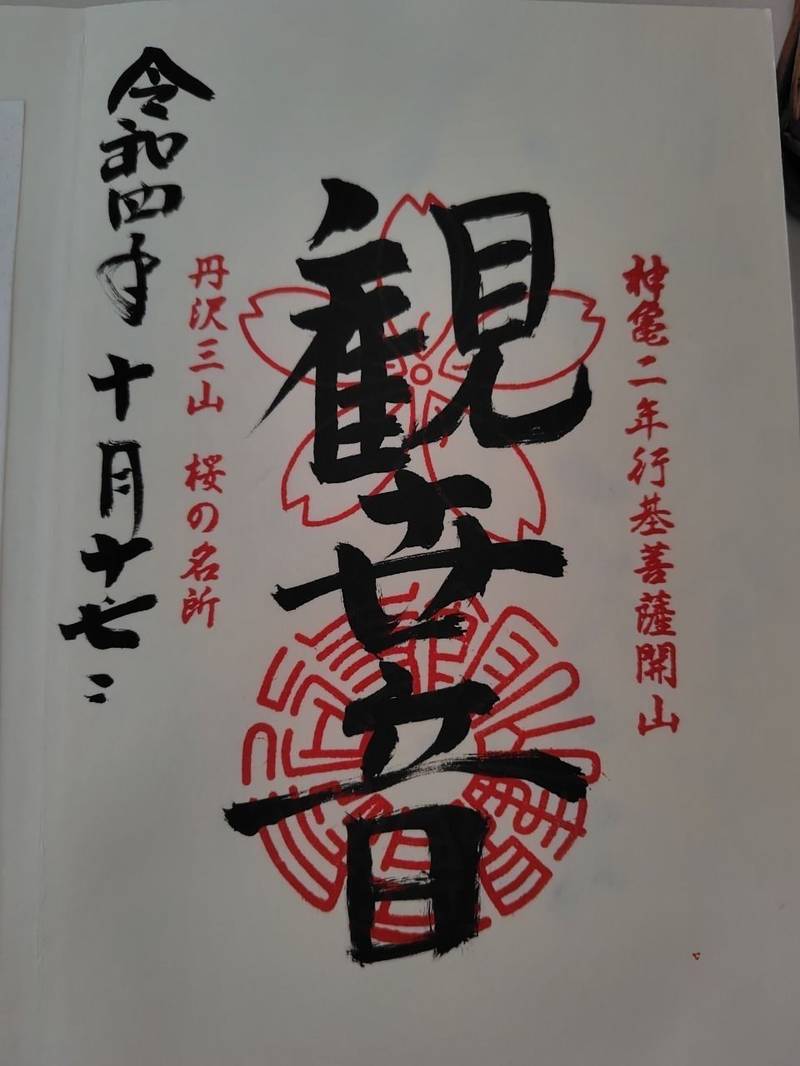 神亀二年行基菩薩開山
観世音
丹沢三山 桜の名所
令和四年十月十七日